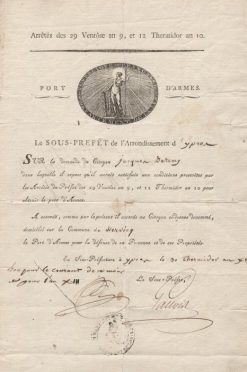 Arrêtés des 29 Ventôse an 9, et 12 Thermidor an 10.
PORT D'ARMES.
Le SOUS-PRÉFET de l'Arrondissement d'ypres
Sur la demande du Citoyen Jacques
dans laquelle il expose qu'il aurait satisfait aux conditions prescrites par
les Arrêtés du Préfet des 29 Ventôse an 9, et 12 Thermidor an 10 pour
obtenir le port d'Armes.
A accordé, comme par la présente il accorde au Citoyen dénommé,
domicilié sur la Commune de Wervicq
le Port d'Armes pour la défense de sa Personne et de ses Propriétés.
En Sous-Préfecture à ypres le 30 Thermidor an
pour l'an XIII
Le Sous-Préfet